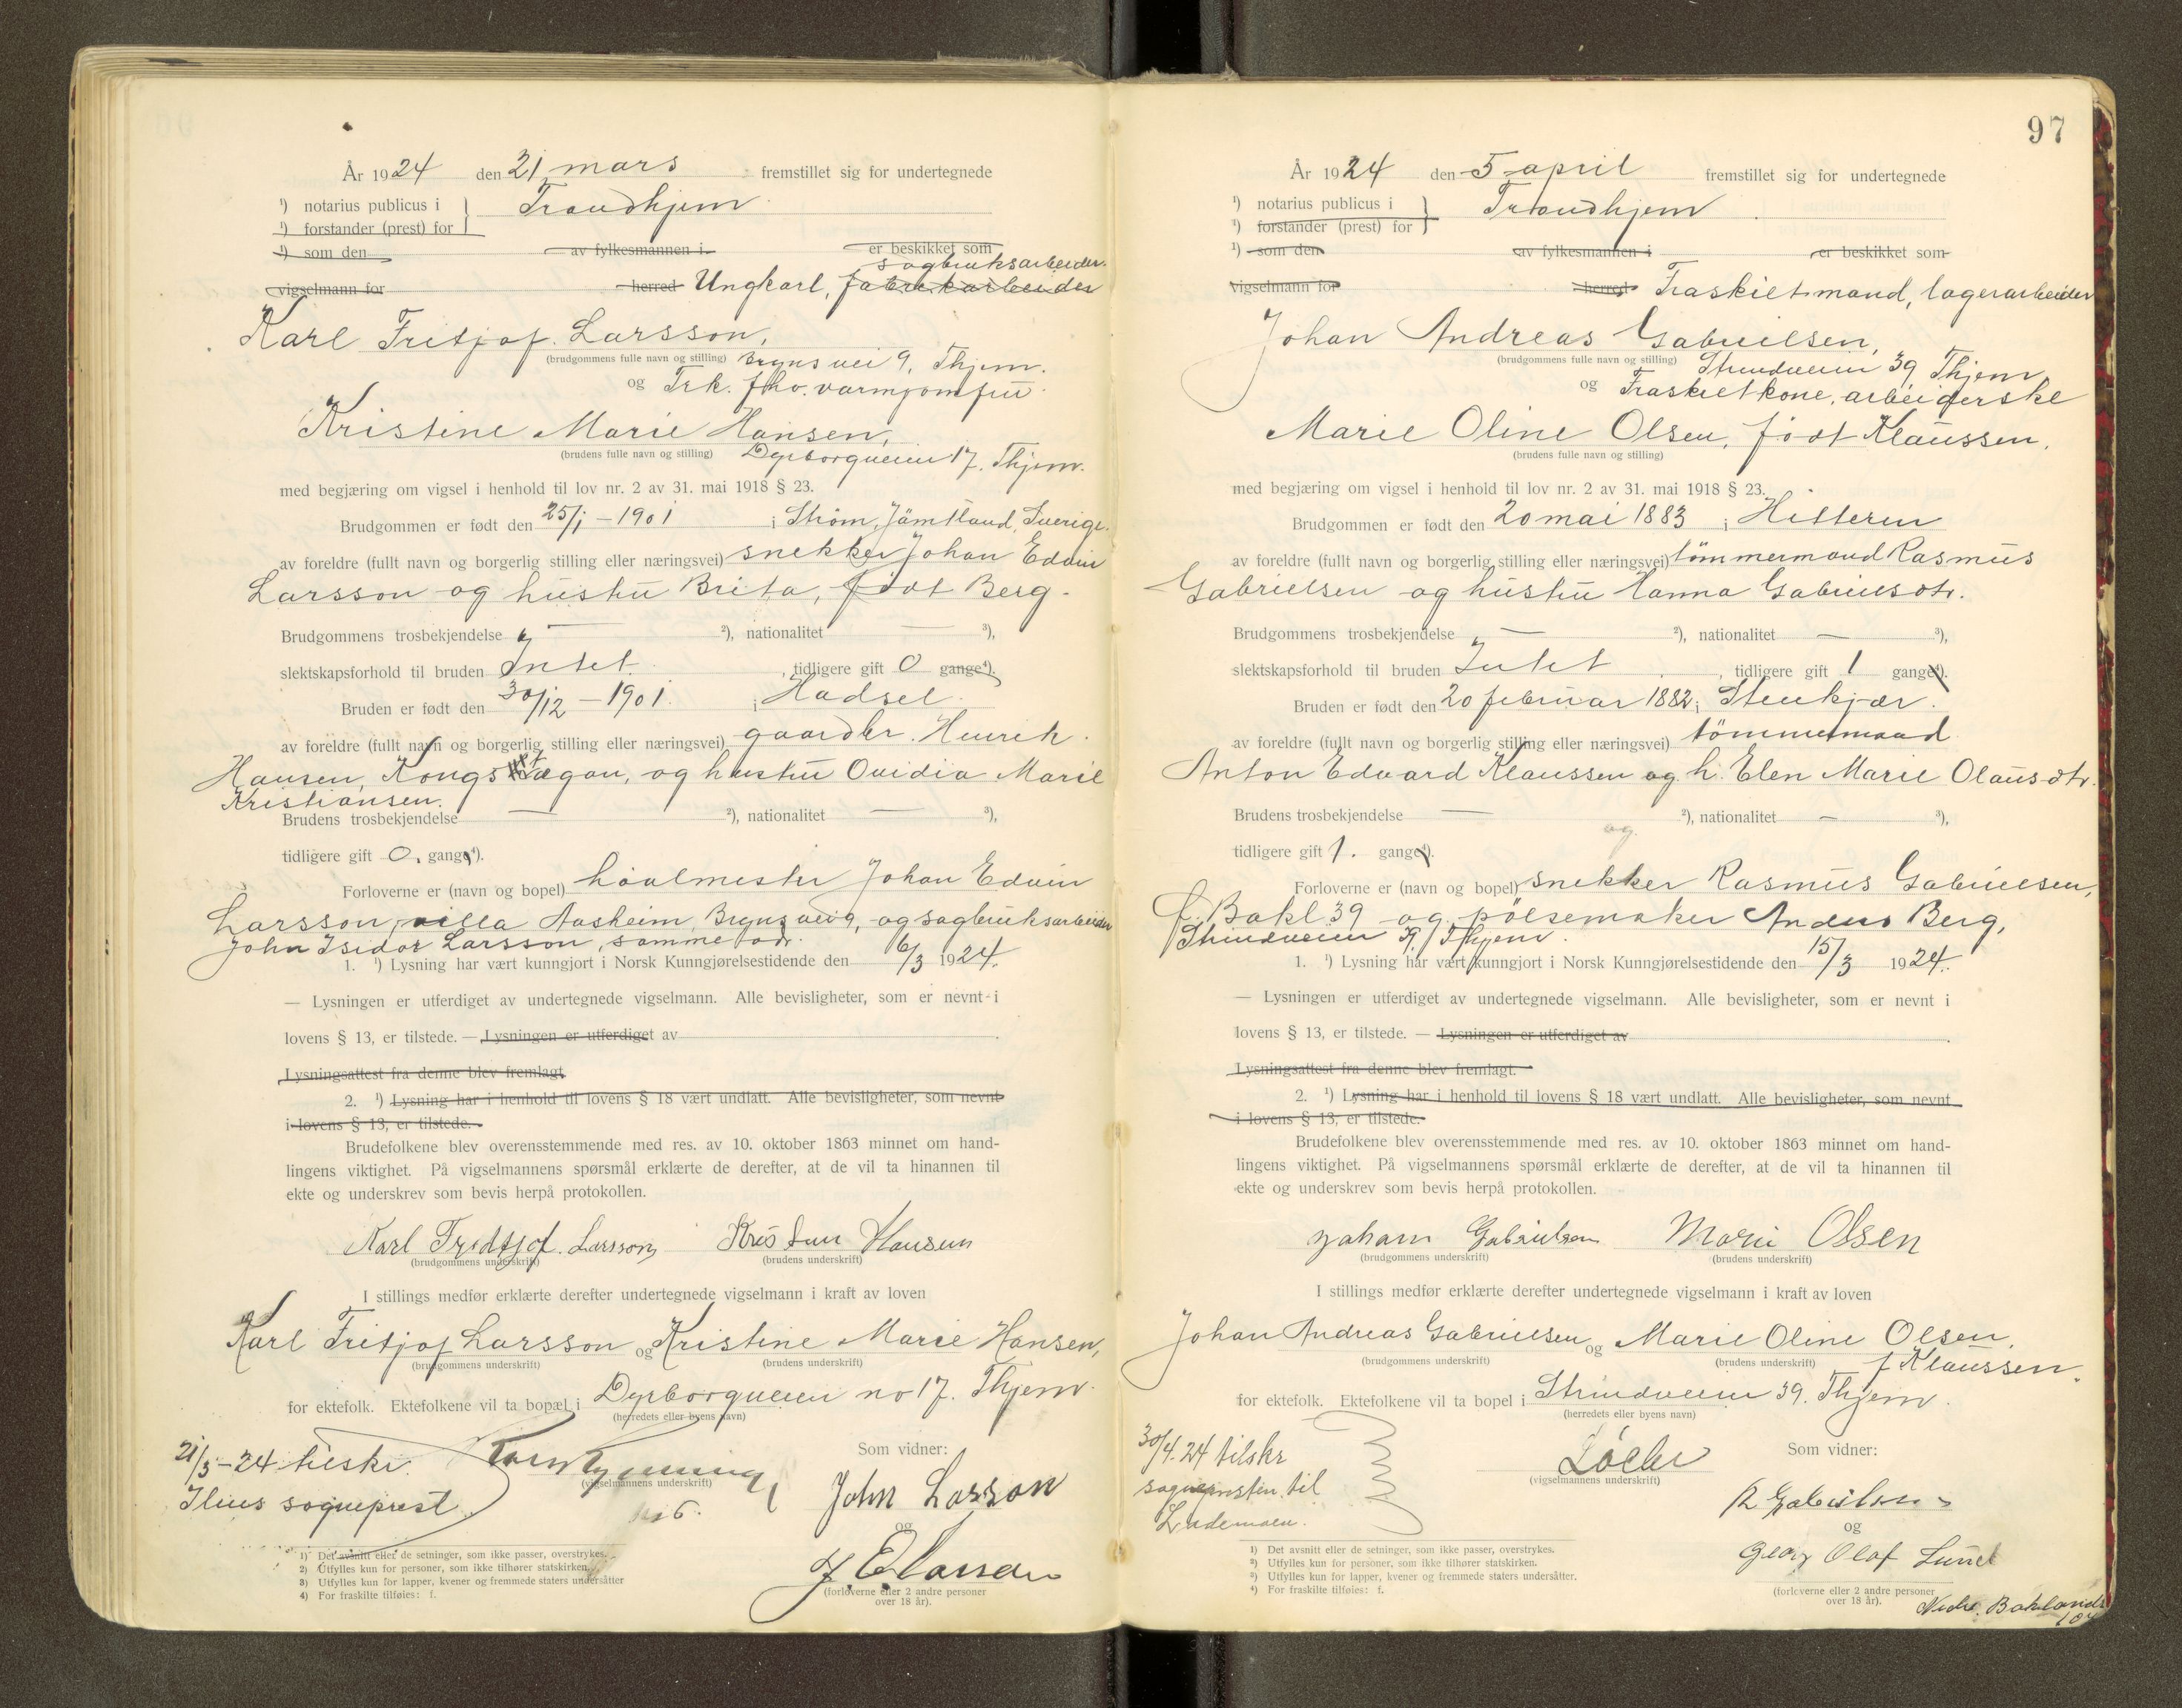 År 1924 den 21 mars fremstillet sig for undertegnede
¹) notarius publicus i } Trondhjem
¹) forstander (prest) for
¹) som den av fylkesmannen i er beskikket som
sagbruksarbeider.
vigselmann for herred Ungkarl, fabrikarbeider
Karl Fritjof Larsson,
(brudgommens fulle navn og stilling) Bryns vei 9, Thjem.
og Frk. fhv. varmjomfru
Kristine Marie Hansen,
(brudens fulle navn og stilling) Dyrborgveien 17, Thjem.
med begjæring om vigsel i henhold til lov nr. 2 av 31. mai 1918 § 23.
Brudgommen er født den 25/1 - 1901 i Strøm, Jämtland, Sverige.
av foreldre (fullt navn og borgerlig stilling eller næringsvei) snekker Johan Edvin
Larsson og hustru Brita, født Berg.
Brudgommens trosbekjendelse — ²), nationalitet — ³),
slektskapsforhold til bruden Intet , tidligere gift 0 gange⁴).
Bruden er født den 30/12 - 1901 i Hadsel
av foreldre (fullt navn og borgerlig stilling eller næringsvei) gaardbr. Henrik
Hansen, Kongs vaagan, og hustru Ovidia Marie
Kristiansen.
Brudens trosbekjendelse — ²), nationalitet — ³),
tidligere gift 0. gange⁴).
Forloverne er (navn og bopel) høvlmester Johan Edvin
Larsson, villa Aasheim, Bryns vei 9, og sagbruksarbeider
John Isidor Larsson, samme adr.
1. ¹) Lysning har vært kunngjort i Norsk Kunngjørelsestidende den 6/3 1924.
— Lysningen er utferdiget av undertegnede vigselmann. Alle bevisligheter, som er nevnt i
lovens § 13, er tilstede. — Lysningen er utferdiget av
Lysningsattest fra denne blev fremlagt
2. ¹) Lysning har i henhold til lovens § 18 vært undlatt. Alle bevisligheter, som nevnt
i lovens § 13, er tilstede.
Brudefolkene blev overensstemmende med res. av 10. oktober 1863 minnet om hand-
lingens viktighet. På vigselmannens spørsmål erklærte de derefter, at de vil ta hinannen til
ekte og underskrev som bevis herpå protokollen.
Karl Fridtjof Larsson Kristine Hansen
(brudgommens underskrift) (brudens underskrift)
I stillings medfør erklærte derefter undertegnede vigselmann i kraft av loven
Karl Fritjof Larsson og Kristine Marie Hansen,
(brudgommens underskrift) (brudens underskrift)
for ektefolk. Ektefolkene vil ta bopæl i Dyrborgveien no 17. Thjem.
(herredets eller byens navn)
21/3-24 tilskr.
Ilens sogneprest
(vigselmannens underskrift)
Som vidner:
John Larsson
og
J. E. Larsson
(forloverne eller 2 andre personer
over 18 år).
1) Det avsnitt eller de setninger, som ikke passer, overstrykes.
2) Utfylles kun for personer, som ikke tilhører statskirken.
3) Utfylles kun for lapper, kvener og fremmede staters undersåtter
4) For fraskilte tilføies: f.
97
År 1924 den 5 april fremstillet sig for undertegnede
¹) notarius publicus i } Trondhjem
¹) forstander (prest) for
¹) som den av fylkesmannen i er beskikket som
vigselmann for herred Fraskilt mand, lagerarbeider
Johan Andreas Gabrielsen,
(brudgommens fulle navn og stilling) Strindveien 39 Thjem,
og Fraskilt kone, arbeiderske
Marie Oline Olsen, født Klaussen,
(brudens fulle navn og stilling)
med begjæring om vigsel i henhold til lov nr. 2 av 31. mai 1918 § 23.
Brudgommen er født den 20 mai 1883 i Hitteren
av foreldre (fullt navn og borgerlig stilling eller næringsvei) tömmermand Rasmus
Gabrielsen og hustru Hanna Gabrielsdtr.
Brudgommens trosbekjendelse — ²), nationalitet — ³),
slektskapsforhold til bruden Intet , tidligere gift 1 gange⁴).
Bruden er født den 20 februar 1882 i Stenkjær.
av foreldre (fullt navn og borgerlig stilling eller næringsvei) tömmermand
Anton Edvard Klaussen og h. Elen Marie Olausdtr.
Brudens trosbekjendelse — ²), nationalitet — ³),
og
tidligere gift 1. gange⁴).
Forloverne er (navn og bopel) snekker Rasmus Gabrielsen,
Ø. Bakl 39 og pölsemaker Anders Berg,
Strindveien Thjem.
1. ¹) Lysning har vært kunngjort i Norsk Kunngjørelsestidende den 15/3 1924.
— Lysningen er utferdiget av undertegnede vigselmann. Alle bevisligheter, som er nevnt i
lovens § 13, er tilstede. — Lysningen er utferdiget av
Lysningsattest fra denne blev fremlagt.
2. ¹) Lysning har i henhold til lovens § 18 vært undlatt. Alle bevisligheter, som nevnt
i lovens § 13, er tilstede.
Brudefolkene blev overensstemmende med res. av 10. oktober 1863 minnet om hand-
lingens viktighet. På vigselmannens spørsmål erklærte de derefter, at de vil ta hinannen til
ekte og underskrev som bevis herpå protokollen.
Johan Gabrielsen Marie Olsen
(brudgommens underskrift) (brudens underskrift)
I stillings medfør erklærte derefter undertegnede vigselmann i kraft av loven
Johan Andreas Gabrielsen og Marie Oline Olsen,
(brudgommens underskrift) (brudens underskrift) f Klaussen.
for ektefolk. Ektefolkene vil ta bopel i Strindveien 39. Thjem.
(herredets eller byens navn)
30/4.24 tilskr
sognepresten til
Lademoen.
(vigselmannens underskrift)
Som vidner:
R Gabrielsen
og
Georg Olaf Lund
(forloverne eller 2 andre personer
over 18 år).
Nedre Baklands
1) Det avsnitt eller de setninger, som ikke passer, overstrykes.
2) Utfylles kun for personer, som ikke tilhører statskirken.
3) Utfylles kun for lapper, kvener og fremmede staters undersåtter.
4) For fraskilte tilføies: f.